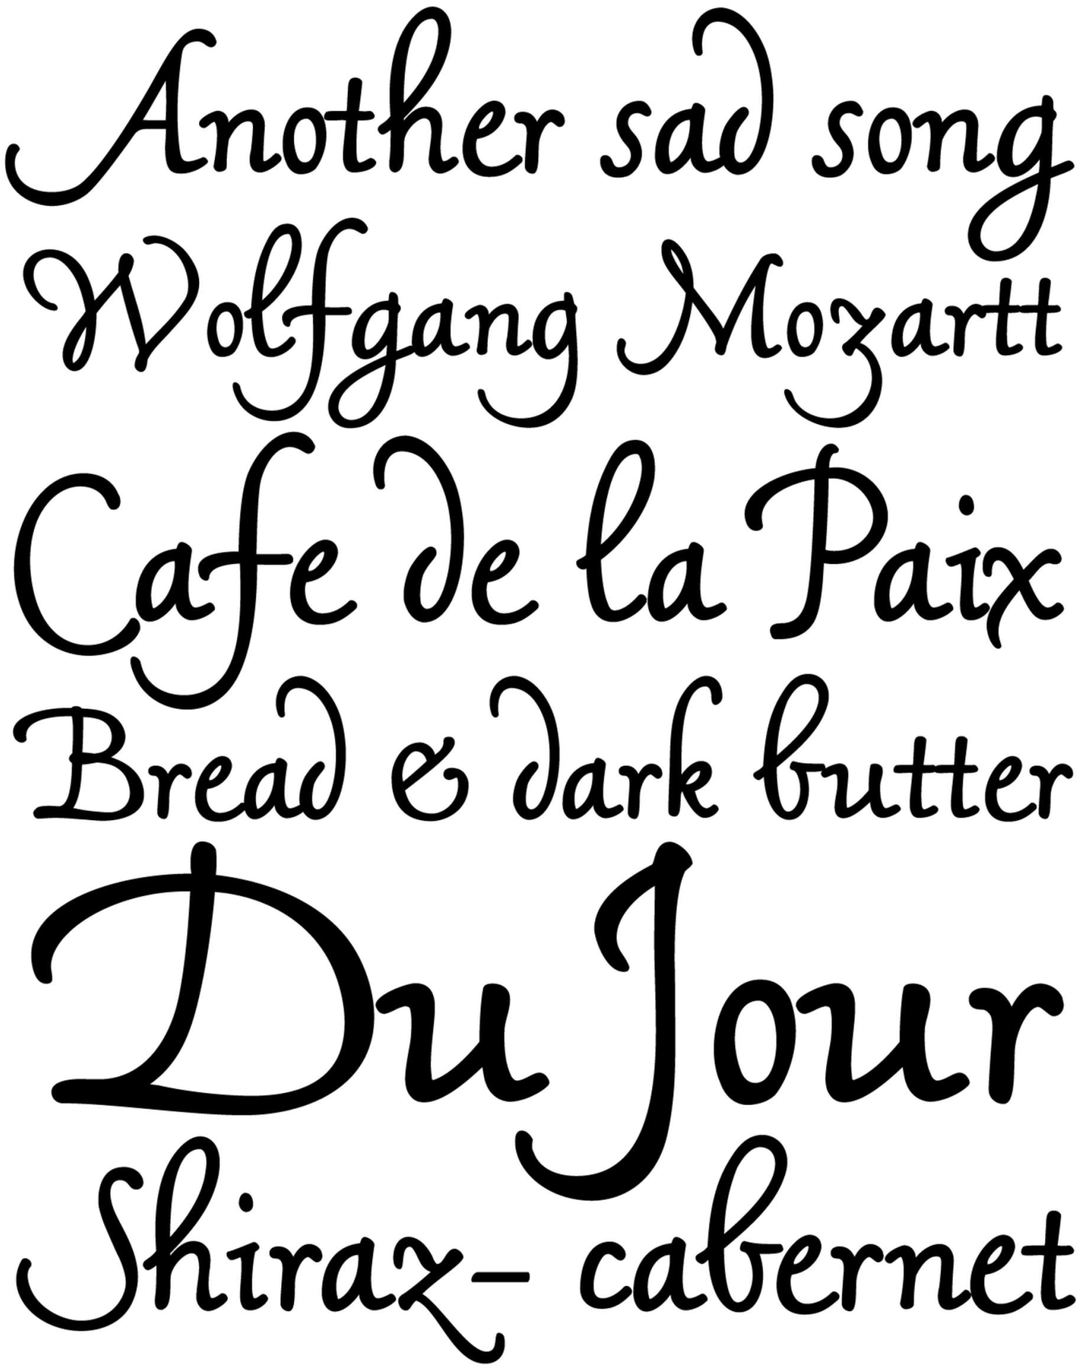 Another sad song
Wolfgang Mozartt
Cafe de la Paix
Bread & dark butter
Du Jour
Shiraz- cabernet